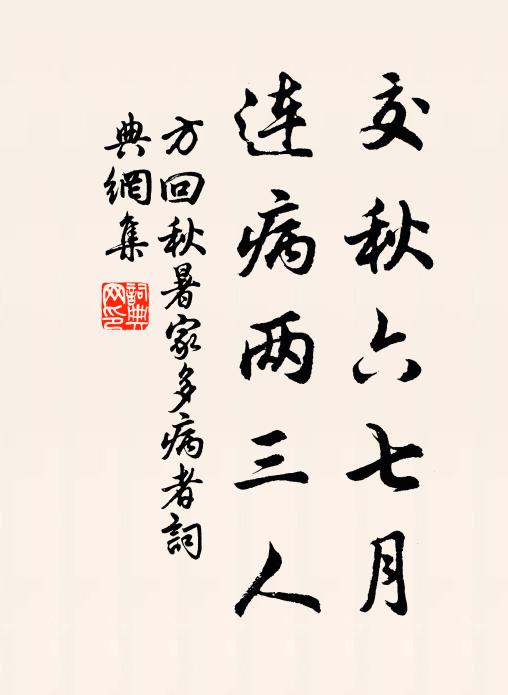 交秋六七月
连病两三人
方回秋暑家多病者詞
典網集
詞典网印